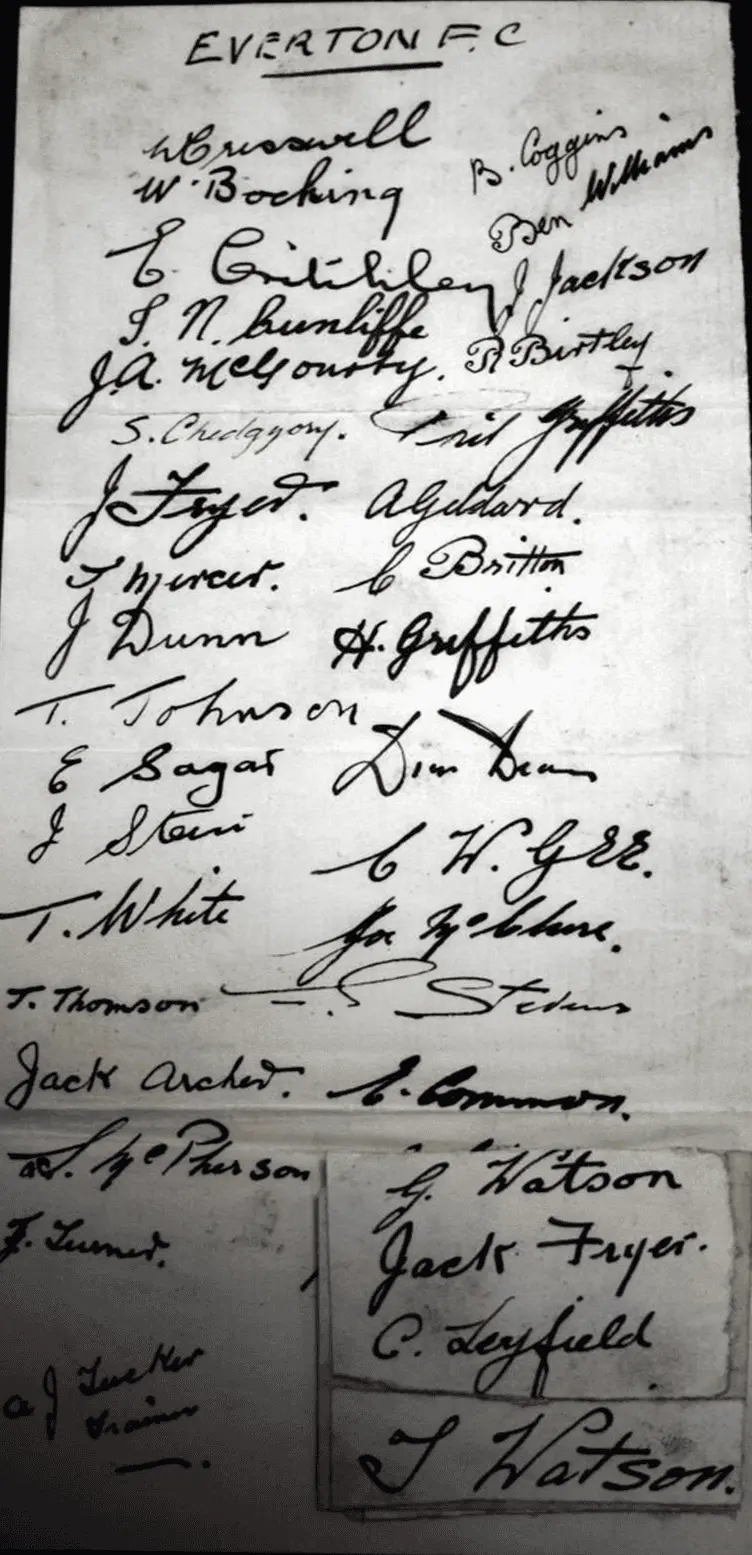 EVERTON F.C
W Cresswell
W. Bocking
B. Coggins
Ben Williams
E. Critchley
J Jackson
J. N. Cunliffe
J.A. McGourty.
R Birtley
S. Chedgzoy.
Phil Griffiths
J Fryer.
A Geldard.
J Mercer.
C Britton
J Dunn
H. Griffiths
T. Johnson
E Sagar
Dixie Dean
J Stein
C W. GEE.
T. White
Joe McClure.
J. Thomson
Stevens
Jack Archer.
E. Common.
McPherson
G. Watson
J. Turner.
Jack Fryer.
C. Leyfield
A J Tucker
Trainer
T Watson.